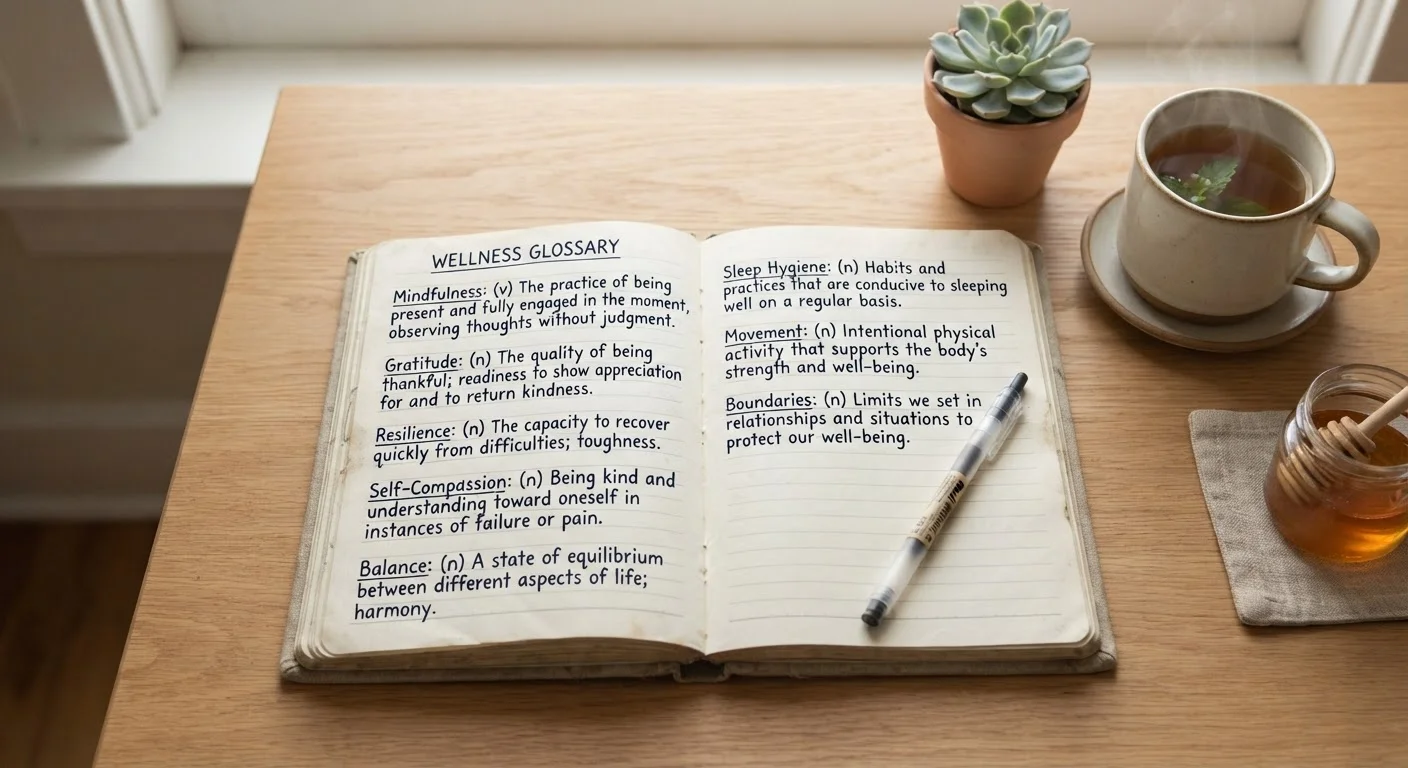 WELLNESS GLOSSARY
Mindfulness: (v) The practice of being
present and fully engaged in the moment,
observing thoughts without judgment.
Gratitude: (n) The quality of being
thankful; readiness to show appreciation
for and to return kindness.
Resilience: (n) The capacity to recover
quickly from difficulties; toughness.
Self-Compassion: (n) Being kind and
understanding toward oneself in
instances of failure or pain.
Balance: (n) A state of equilibrium
between different aspects of life;
harmony.
Sleep Hygiene: (n) Habits and
practices that are conducive to sleeping
well on a regular basis.
Movement: (n) Intentional physical
activity that supports the body's
strength and well-being.
Boundaries: (n) Limits we set in
relationships and situations to
protect our well-being.